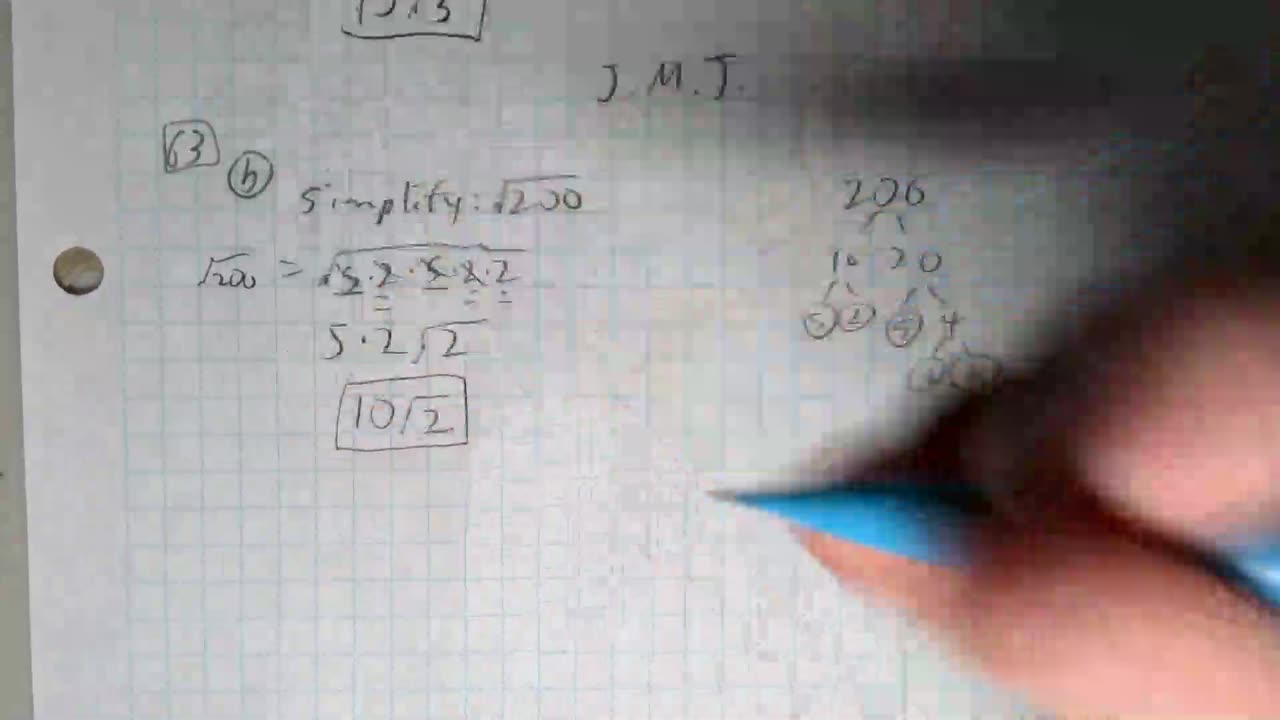 J.M.J.
63
b simplify: √200
√200 = √5·2·5·2·2
5·2√2
10√2
200
10 20
5 2 5 4